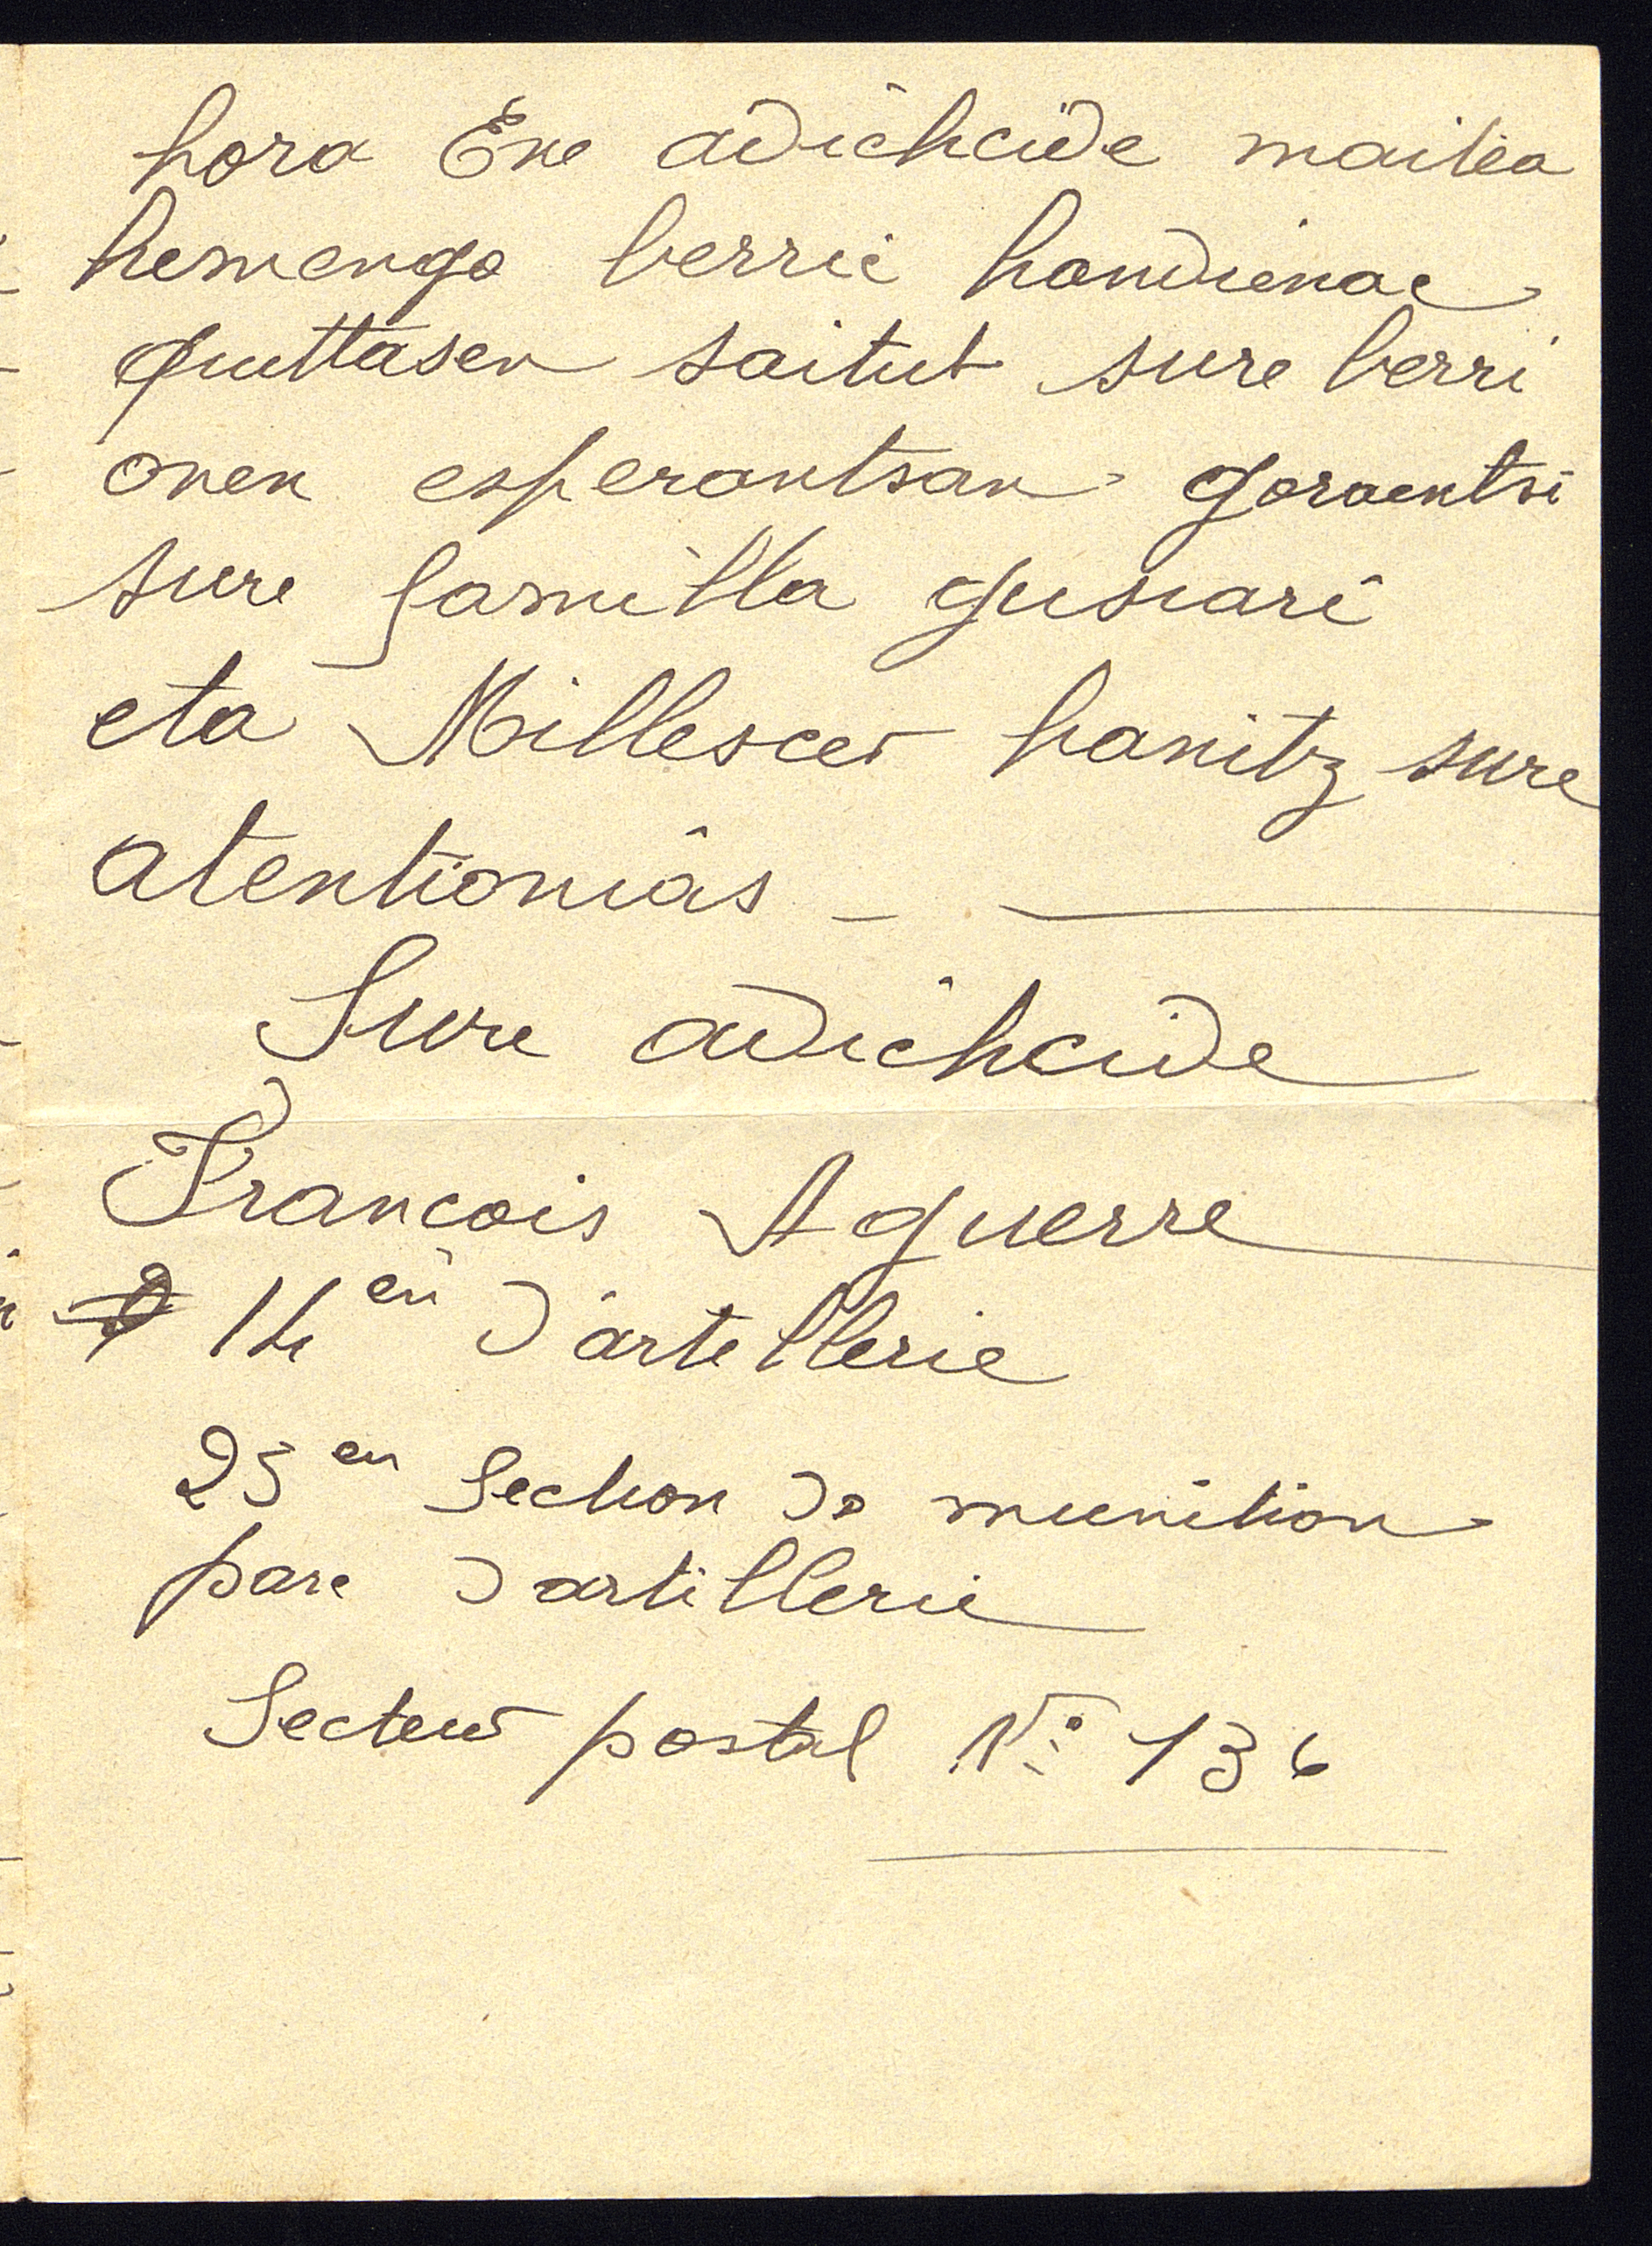 hora Ene adichcide maitea
hemengo berric handienac
quittasen saitut sure berri
onen esperantsan goraentsi
sure familla gusiari
eta Millescer hanitz sure
atentionias _
Sure adichcide
Francois Aguerre
14 en d'artellerie
25 en Section de munition
parc d artillerie
Secteur postal No 136